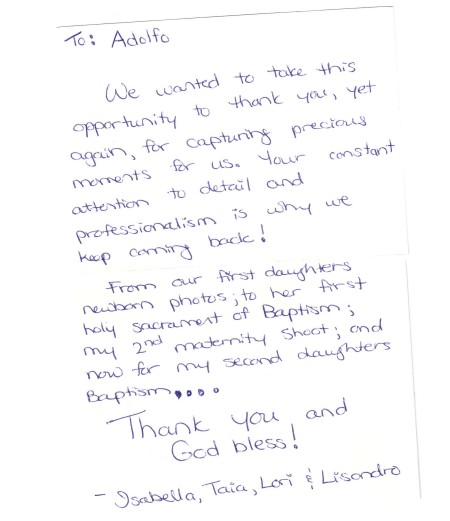 To: Adolfo
We wanted to take this
opportunity to thank you, yet
again, for capturing precious
moments for us. Your constant
attention to detail and
professionalism is why we
keep coming back!
From our first daughters
newborn photos; to her first
holy sacrament of Baptism;
my 2nd maternity shoot; and
now for my second daughters
Baptism....
Thank you and
God bless!
- Isabella, Taia, Lori & Lisandro